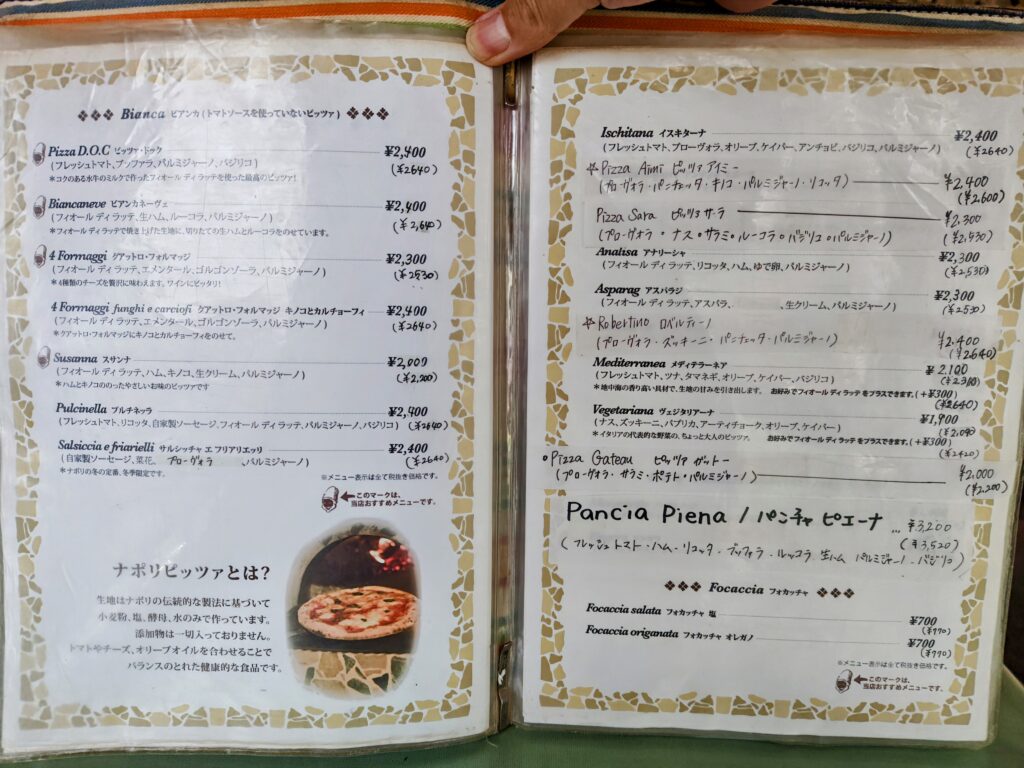 Bianca ビアンカ(トマトソースを使っていないピッツァ)
Pizza D.O.C ピッツァ・ドック ¥2,400
(フレッシュトマト、ブッファラ、パルミジャーノ、バジリコ) (¥2640)
*コクのある水牛のミルクで作ったフィオール ディ ラッテを使った最高のピッツァ!
Biancaneve ビアンカネーヴェ ¥2,400
(フィオール ディ ラッテ、生ハム、ルーコラ、パルミジャーノ) (¥2,640)
*フィオール ディ ラッテで焼き上げた生地に、切りたての生ハムとルーコラをのせています。
4 Formaggi クアットロ・フォルマッジ ¥2,300
(フィオール ディ ラッテ、エメンタール、ゴルゴンゾーラ、パルミジャーノ) (¥2530)
*4種類のチーズを贅沢に味わえます。ワインにピッタリ!
4 Formaggi funghi e carciofi クアットロ・フォルマッジ キノコとカルチョーフィ ¥2,400
(フィオール ディ ラッテ、エメンタール、ゴルゴンゾーラ、パルミジャーノ) (¥2640)
*クアットロ・フォルマッジにキノコとカルチョーフィをのせて。
Susanna スサンナ ¥2,000
(フィオール ディ ラッテ、ハム、キノコ、生クリーム、パルミジャーノ) (¥2,200)
*ハムとキノコののったやさしいお味のピッツァです
Pulcinella プルチネッラ ¥2,400
(フレッシュトマト、リコッタ、自家製ソーセージ、フィオール ディ ラッテ、パルミジャーノ、バジリコ) (¥2640)
Salsiccia e friarielli サルシッチャ エ フリアリエッリ ¥2,400
(自家製ソーセージ、菜花、プローヴォラ、パルミジャーノ) (¥2640)
*ナポリの冬の定番、冬季限定です。
※メニュー表示は全て税抜き価格です。
このマークは、
当店おすすめメニューです。
ナポリピッツァとは?
生地はナポリの伝統的な製法に基づいて
小麦粉、塩、酵母、水のみで作っています。
添加物は一切入っておりません。
トマトやチーズ、オリーブオイルを合わせることで
バランスのとれた健康的な食品です。
Ischitana イスキターナ ¥2,400
(フレッシュトマト、プローヴォラ、オリーブ、ケイパー、アンチョビ、バジリコ、パルミジャーノ) (¥2640)
☆Pizza Aimi ピッツァ アイミー
(プローヴォラ・パンチェッタ・キノコ・パルミジャーノ・リコッタ) ¥2,400
(¥2,600)
Pizza Sara ピッツァ サーラ ¥2,300
(プローヴォラ・ナス・サラミ・ルーコラ・バジリコ・パルミジャーノ) (¥2,530)
Analisa アナリーシャ ¥2,300
(フィオール ディ ラッテ、リコッタ、ハム、ゆで卵、パルミジャーノ) (¥2530)
Asparag アスパラジ ¥2,300
(フィオール ディ ラッテ、アスパラ、 、生クリーム、パルミジャーノ) (¥2530)
☆Robertino ロベルティーノ
(プローヴォラ・ズッキーニ・パンチェッタ・パルミジャーノ) ¥2,400
(¥2640)
Mediterranea メディテラーネア ¥2,100
(フレッシュトマト、ツナ、タマネギ、オリーブ、ケイパー、バジリコ) (¥2310)
*地中海の香り高い具材で、生地の甘みを引き出します。 お好みでフィオール ディ ラッテ をプラスできます。(+¥300)
(¥2640)
Vegetariana ヴェジタリアーナ ¥1,900
(ナス、ズッキーニ、パプリカ、アーティチョーク、オリーブ、ケイパー) (¥2,090)
*イタリアの代表的な野菜の、ちょっと大人のピッツァ。 お好みでフィオール ディ ラッテ をプラスできます。(+¥300)
(¥2420)
Pizza Gateau ピッツァ ガットー
(プローヴォラ・サラミ・ポテト・パルミジャーノ) ¥2,000
(¥2,200)
Pancia Piena / パンチャ ピエーナ ... ¥3,200
(フレッシュトマト・ハム・リコッタ・ブッファラ・ルッコラ 生ハム パルミジャーノ・バジリコ) (¥3,520)
Focaccia フォカッチャ
Focaccia salata フォカッチャ 塩 ¥700
(¥770)
Focaccia origanata フォカッチャ オレガノ ¥700
(¥770)
※メニュー表示は全て税抜き価格です。
このマークは、
当店おすすめメニューです。